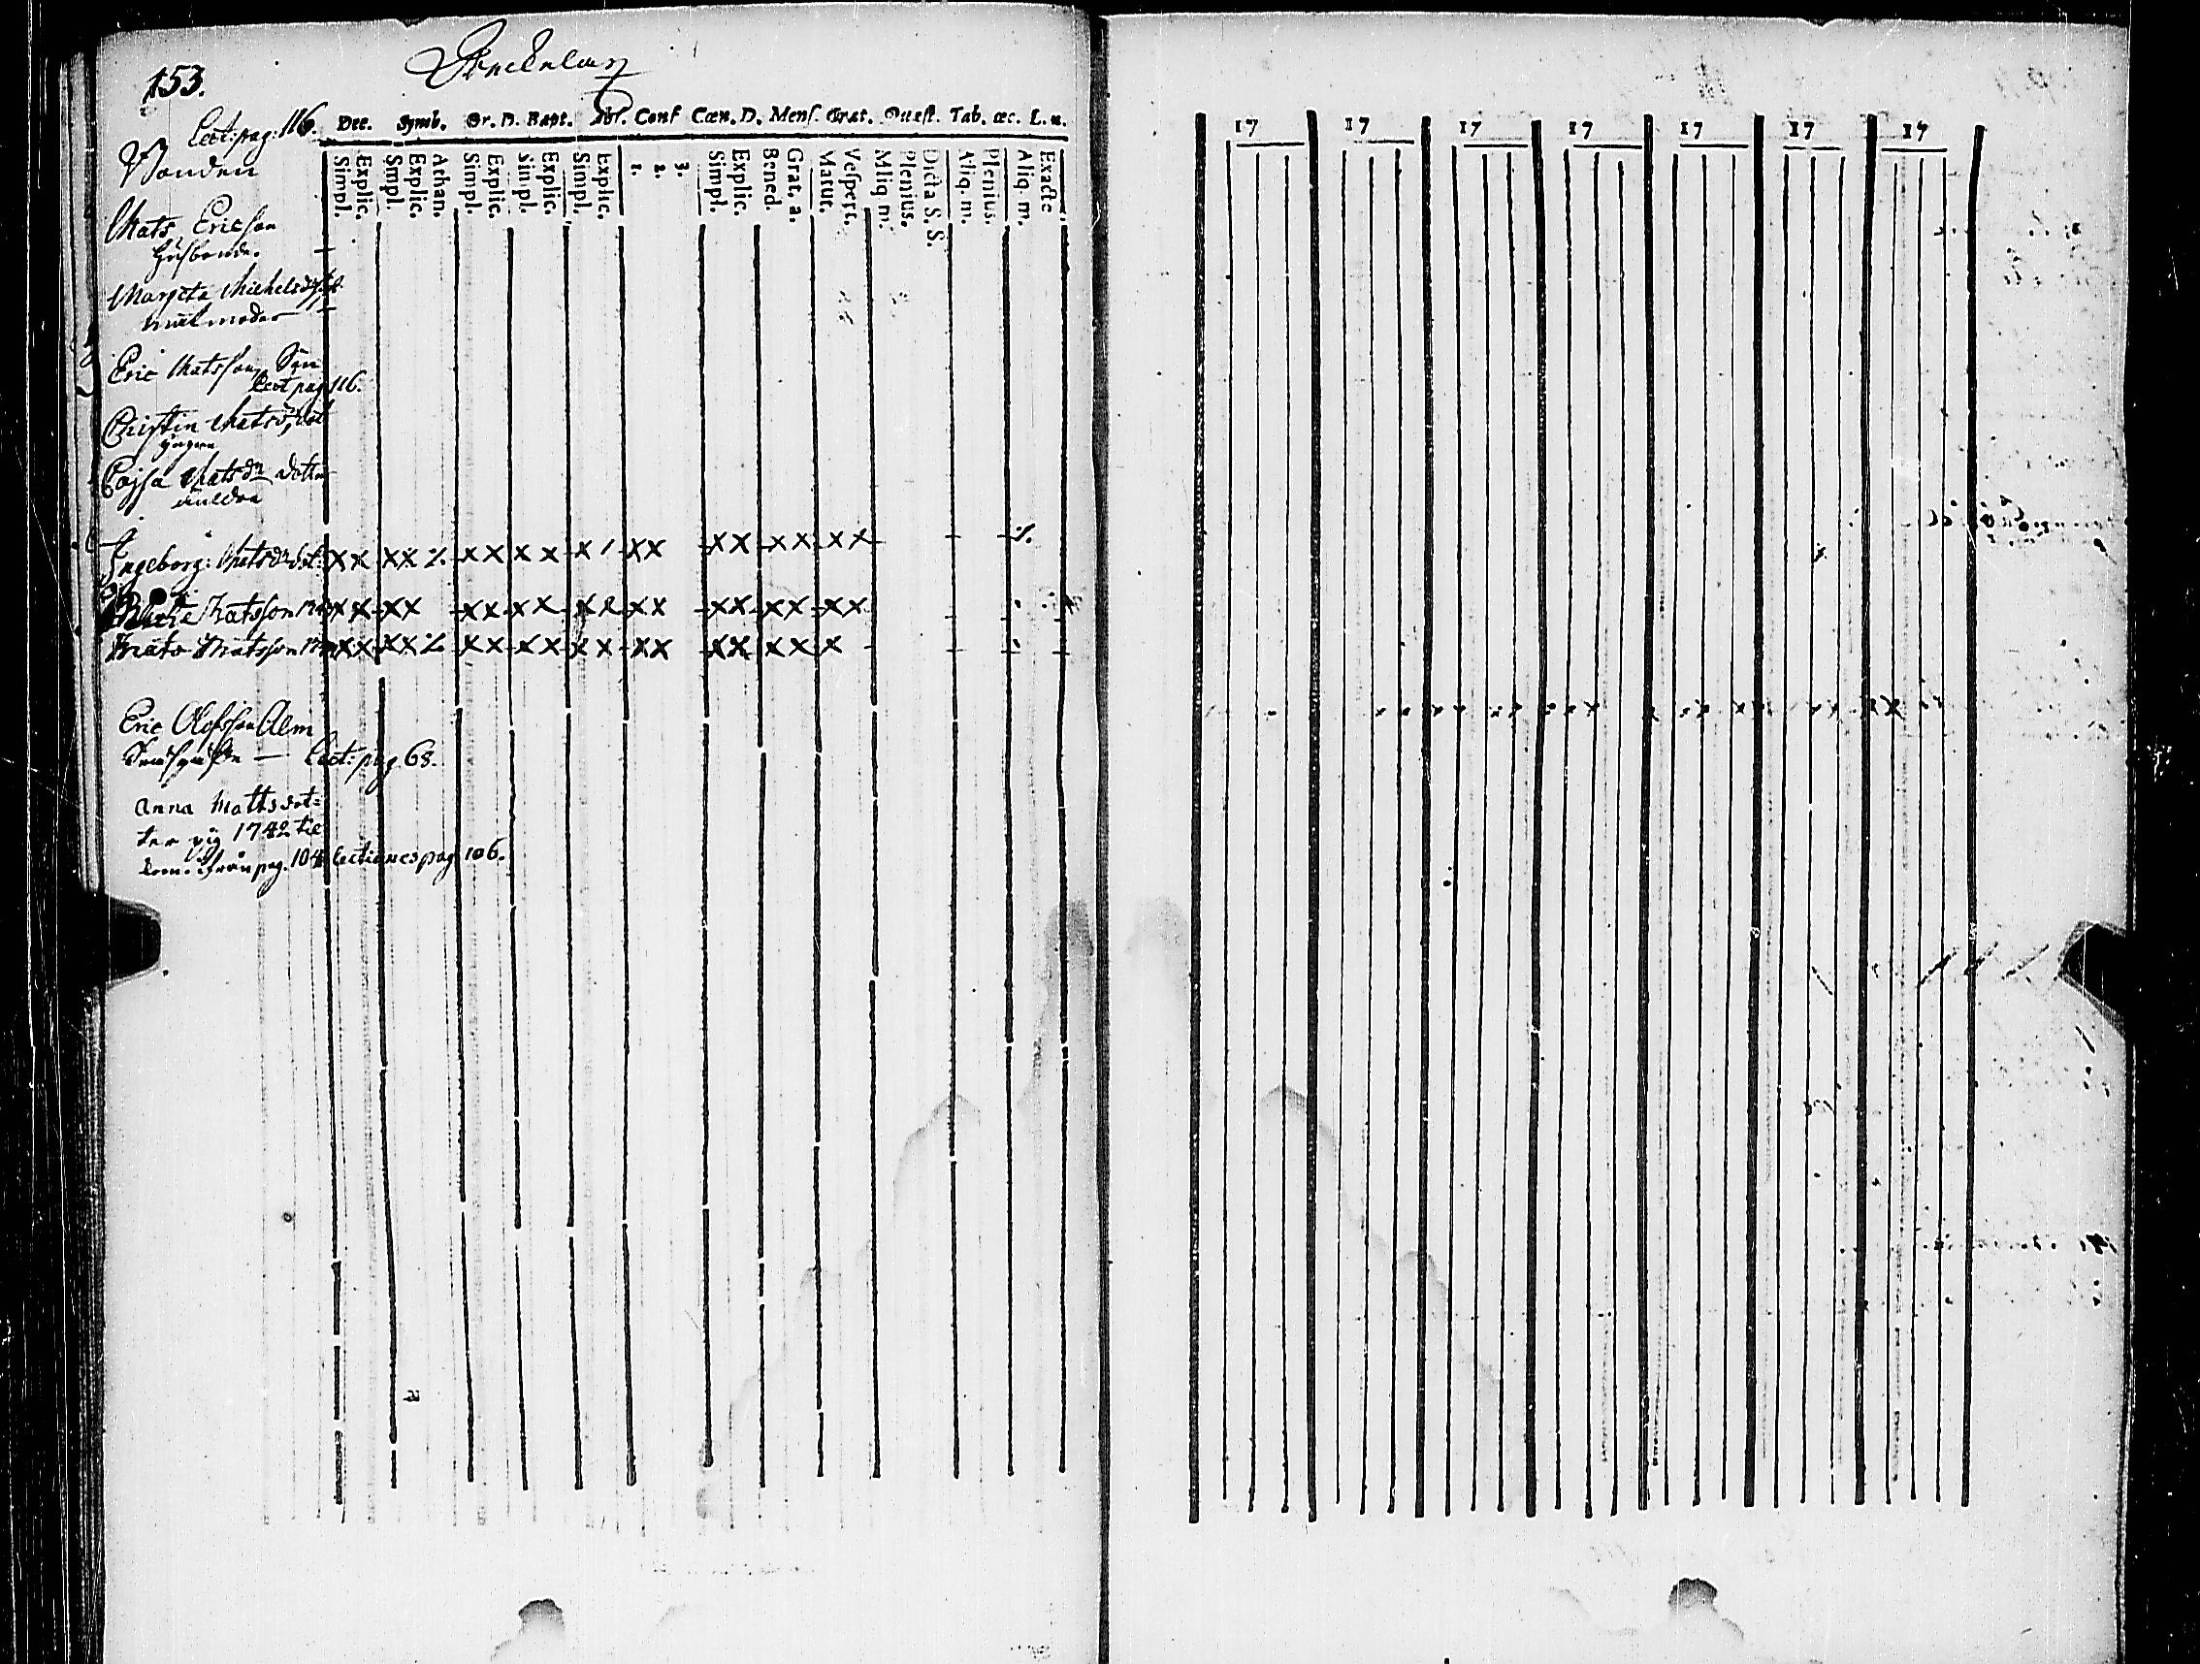 153.
Lect: pag: 116. Dec. Symb. Or. D. Bapt. Abs. Conf Cœn. D. Mens. Grat. Quæst. Tab. œc. L. n.
Simpl. Explic. Simpl. Explic. Athan. Simpl. Explic. Simpl. Explic. Simpl. Explic. 1. 2. 3. Simpl. Explic. Bened. Grat. a. Matut. Vespert. Aliq m. Plenius. Dicta S. S. Aliq. m. Plenius. Aliq. m. Exacte
Mats Ericson
husbonde.
Margeta Michelsdotter
matmoder
Eric Matsson Son
Lect pag 116.
Christin Matsdot
yngre
Cajsa Matsdr dotter
äuldre
Ingeborg: Matsdr dot: x x x x ·/. x x x x x / x x x x x x x x ·/.
Matsson x x x x x x x x x x x x x x x x x
Mats Matsson x x x x ·/. x x x x x x x x x x x x x
Eric Olofsson Alm
Lect: pag 68.
Anna Matts dot=
ter pig 1742 til
kom. ifrån pag. 104 lectiones pag 106.
17 17 17 17 17 17 17